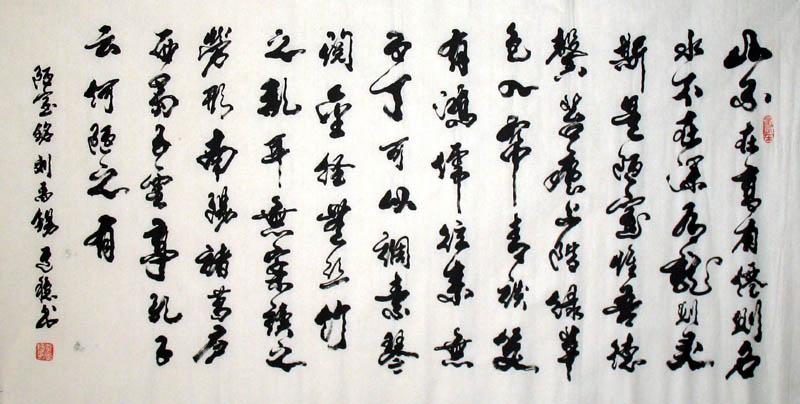 山不在高有僊則名
水不在深有龍則灵
斯是陋室惟吾德
馨苔痕上階綠草
色入帘青談笑
有鴻儒往來無
白丁可以調素琴
閱金經無丝竹
之亂耳無案牘之
勞形南陽諸葛庐
西蜀子雲亭孔子
云何陋之有
陋室銘劉禹錫